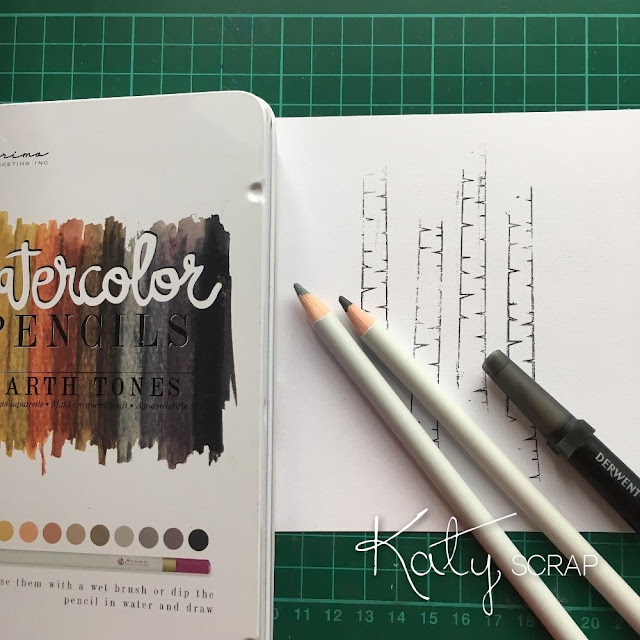 rima
RKETING INC
atercolor
PENCILS
ARTH TONES
• Aquarellstifte
se them with a wet brush or dip the
pencil in water and draw
DERWENT
Katy SCRAP
10 11 12 13 14 15 16 17 18 19 20